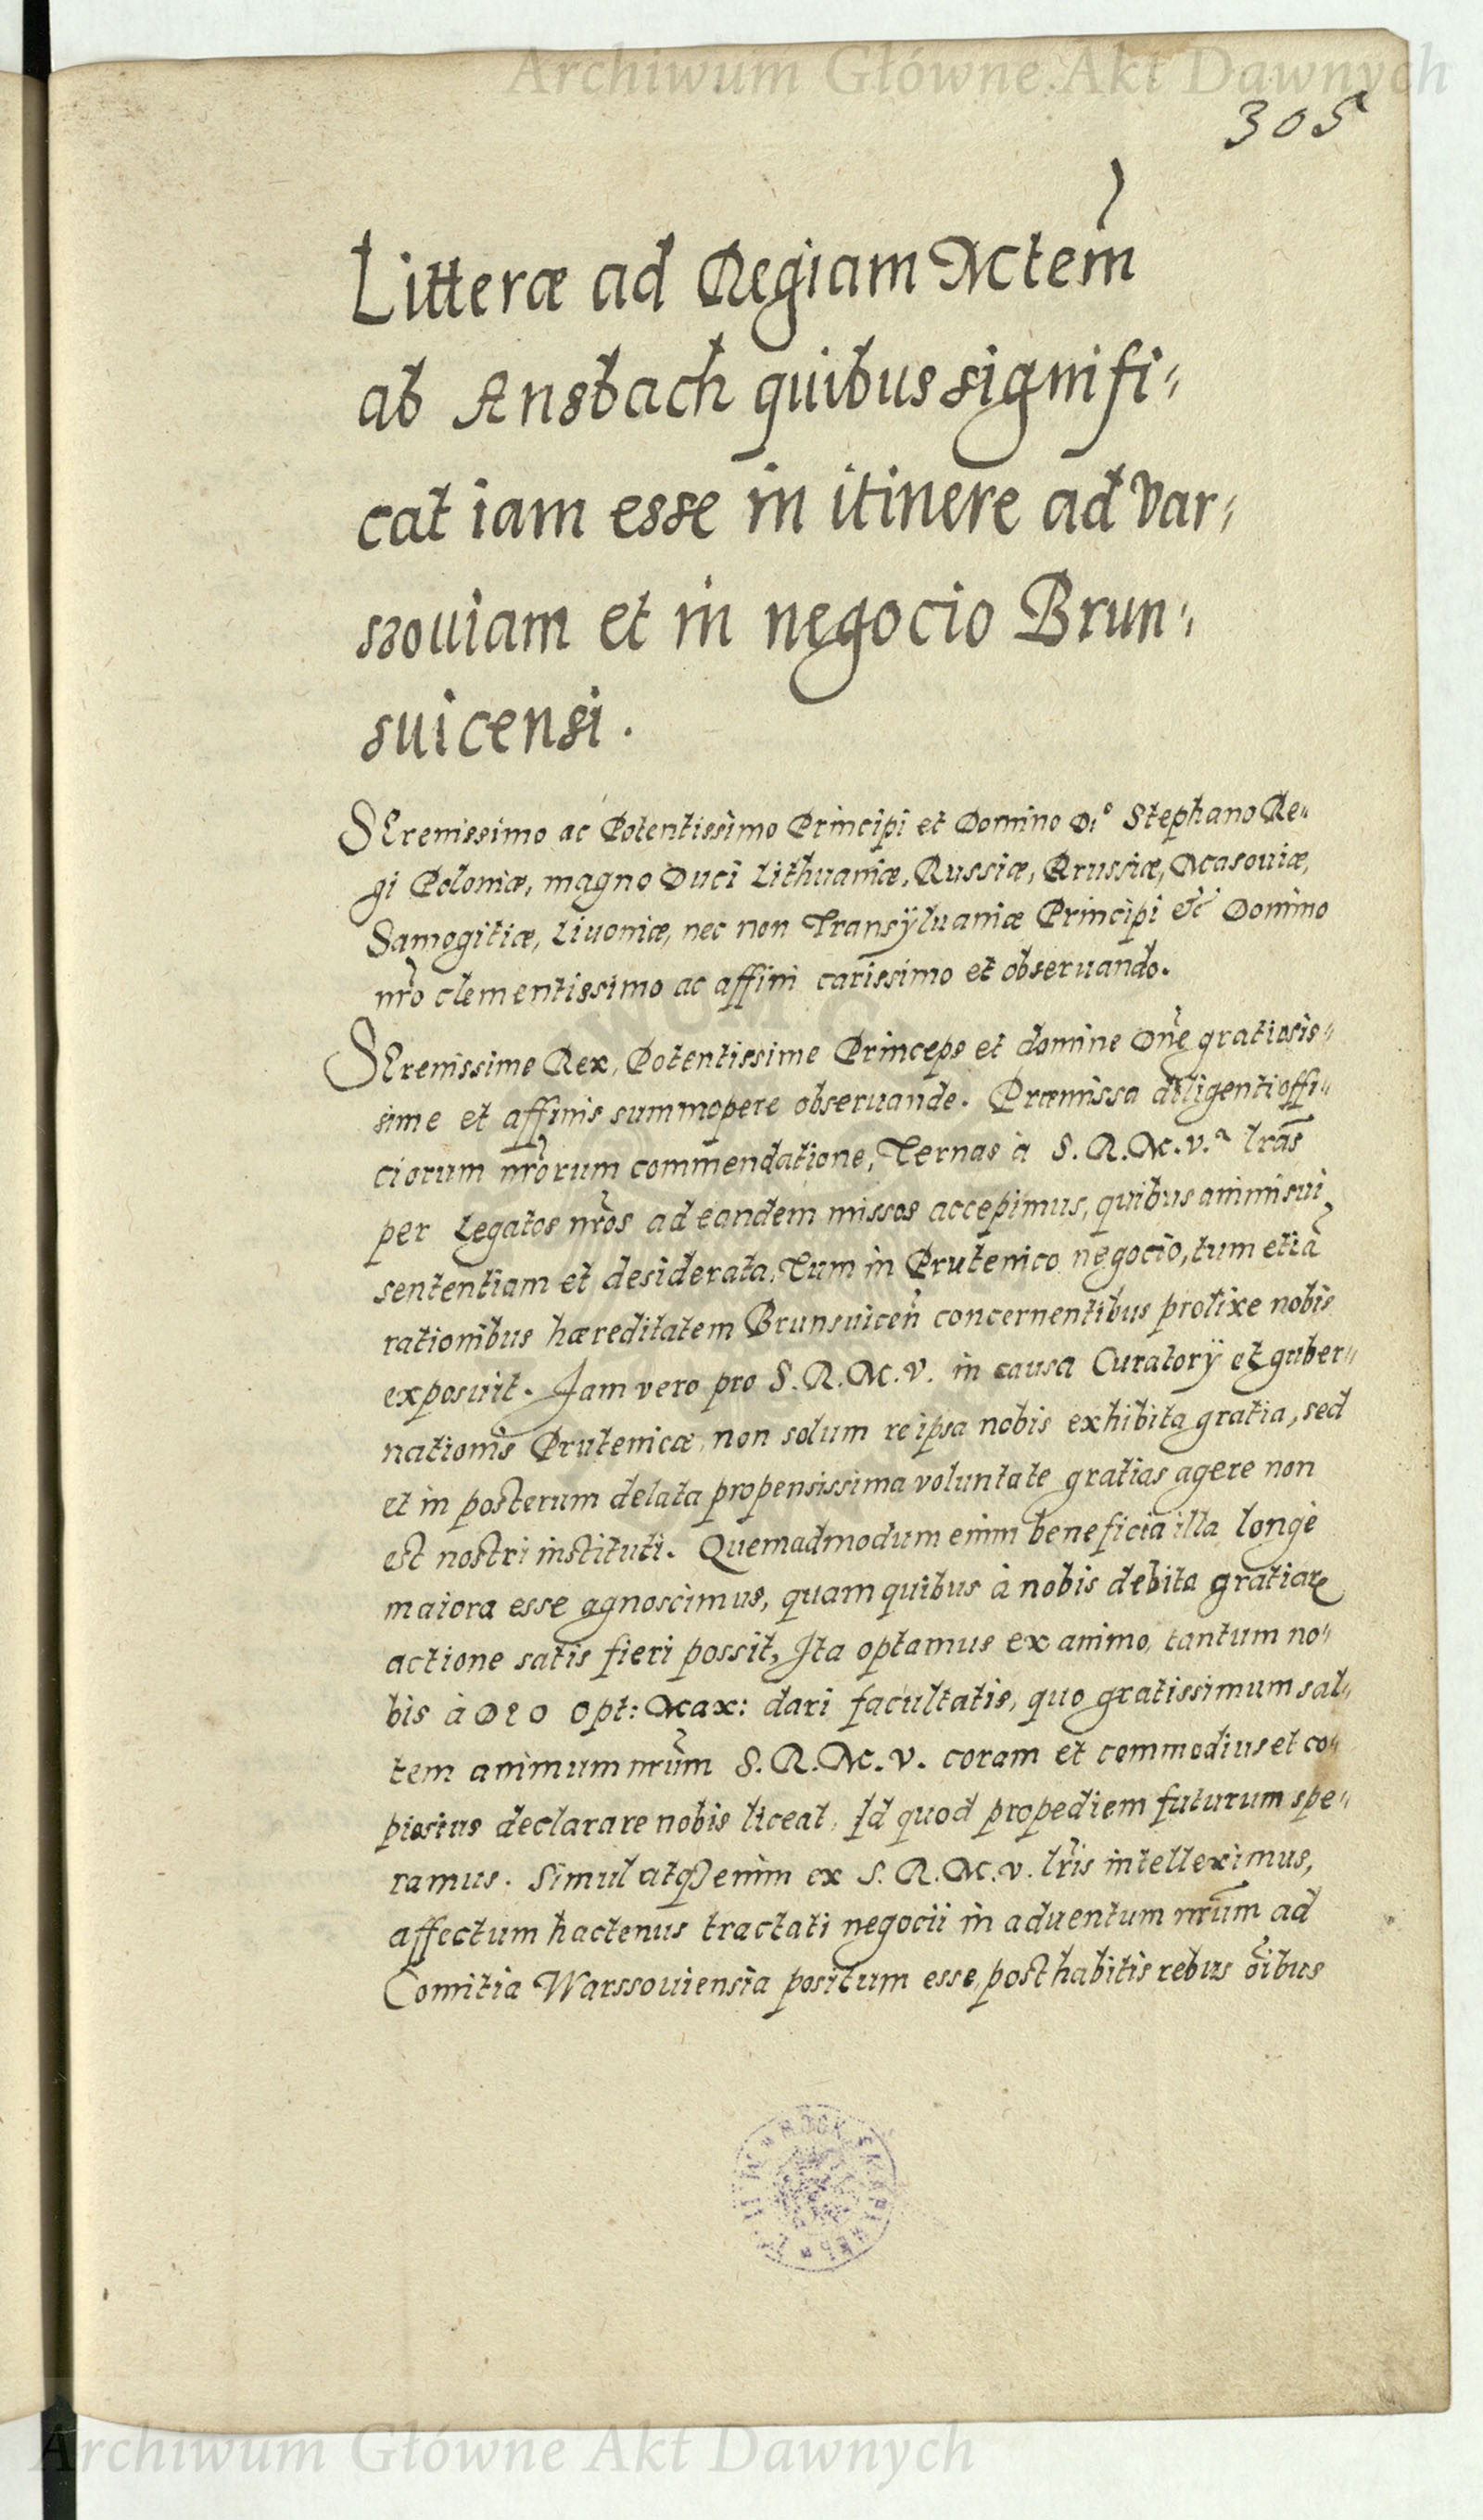 Archiwum Główne Akt Dawnych
305
Litteræ ad Regiam Mctem̃
ab Ansbach quibus signifi„
cat iam esse in itinere ad Var„
souiam et in negocio Brun„
suicensi.
SErenissimo ac Potentissimo Principi et Domino D.º Stephano Re„
gi Poloniæ, magno Duci Lithuaniæ, Russiæ, Prussiæ, Masouiæ,
Samogitiæ, Liuoniæ, nec non Transÿluaniæ Principi etc̃ Domino
nr̃o clementissimo ac affini carissimo et obseruando.
SErenissime Rex, Potentissime Princeps et domine Dñe gratiosis„
sime et affinis summopere obseruande. Præmissa diligenti offi„
ciorum nr̃orum commendatione, Ternas à S.R.M.V.ᵃ lr̃as
per Legatos nr̃os ad eandem missos accepimus, quibus animi sui
sententiam et desiderata, Tum in Prutenico negocio, tum etiã
rationibus hæreditatem Brunsuiceñ concernentibus prolixe nobis
exposuit. Jam vero pro S.R.M.V. in causa Curatorÿ et guber„
nationis Prutenicæ, non solum reipsa nobis exhibita gratia, sed
et in posterum delata propensissima voluntate gratias agere non
est nostri instituti. Quemadmodum enim beneficia illa longè
maiora esse agnoscimus, quam quibus à nobis debita gratiarẽ
actione satis fieri possit, Ita optamus ex animo, tantum no„
bis à DEO Opt: Max: dari facultatis, quo gratissimum sal„
tem animum nr̃um S.R.M.V. coram et commodius et co„
piosius declarare nobis liceat, Id quod propediem futurum spe„
ramus. Simul atqꝫ enim ex S.R.M.V. lr̃is intelleximus,
affectum hactenus tractati negocii in aduentum nr̃um ad
Comitia Warssouiensia positum esse, posthabitis rebus oĩbus
Archiwum Główne Akt Dawnych